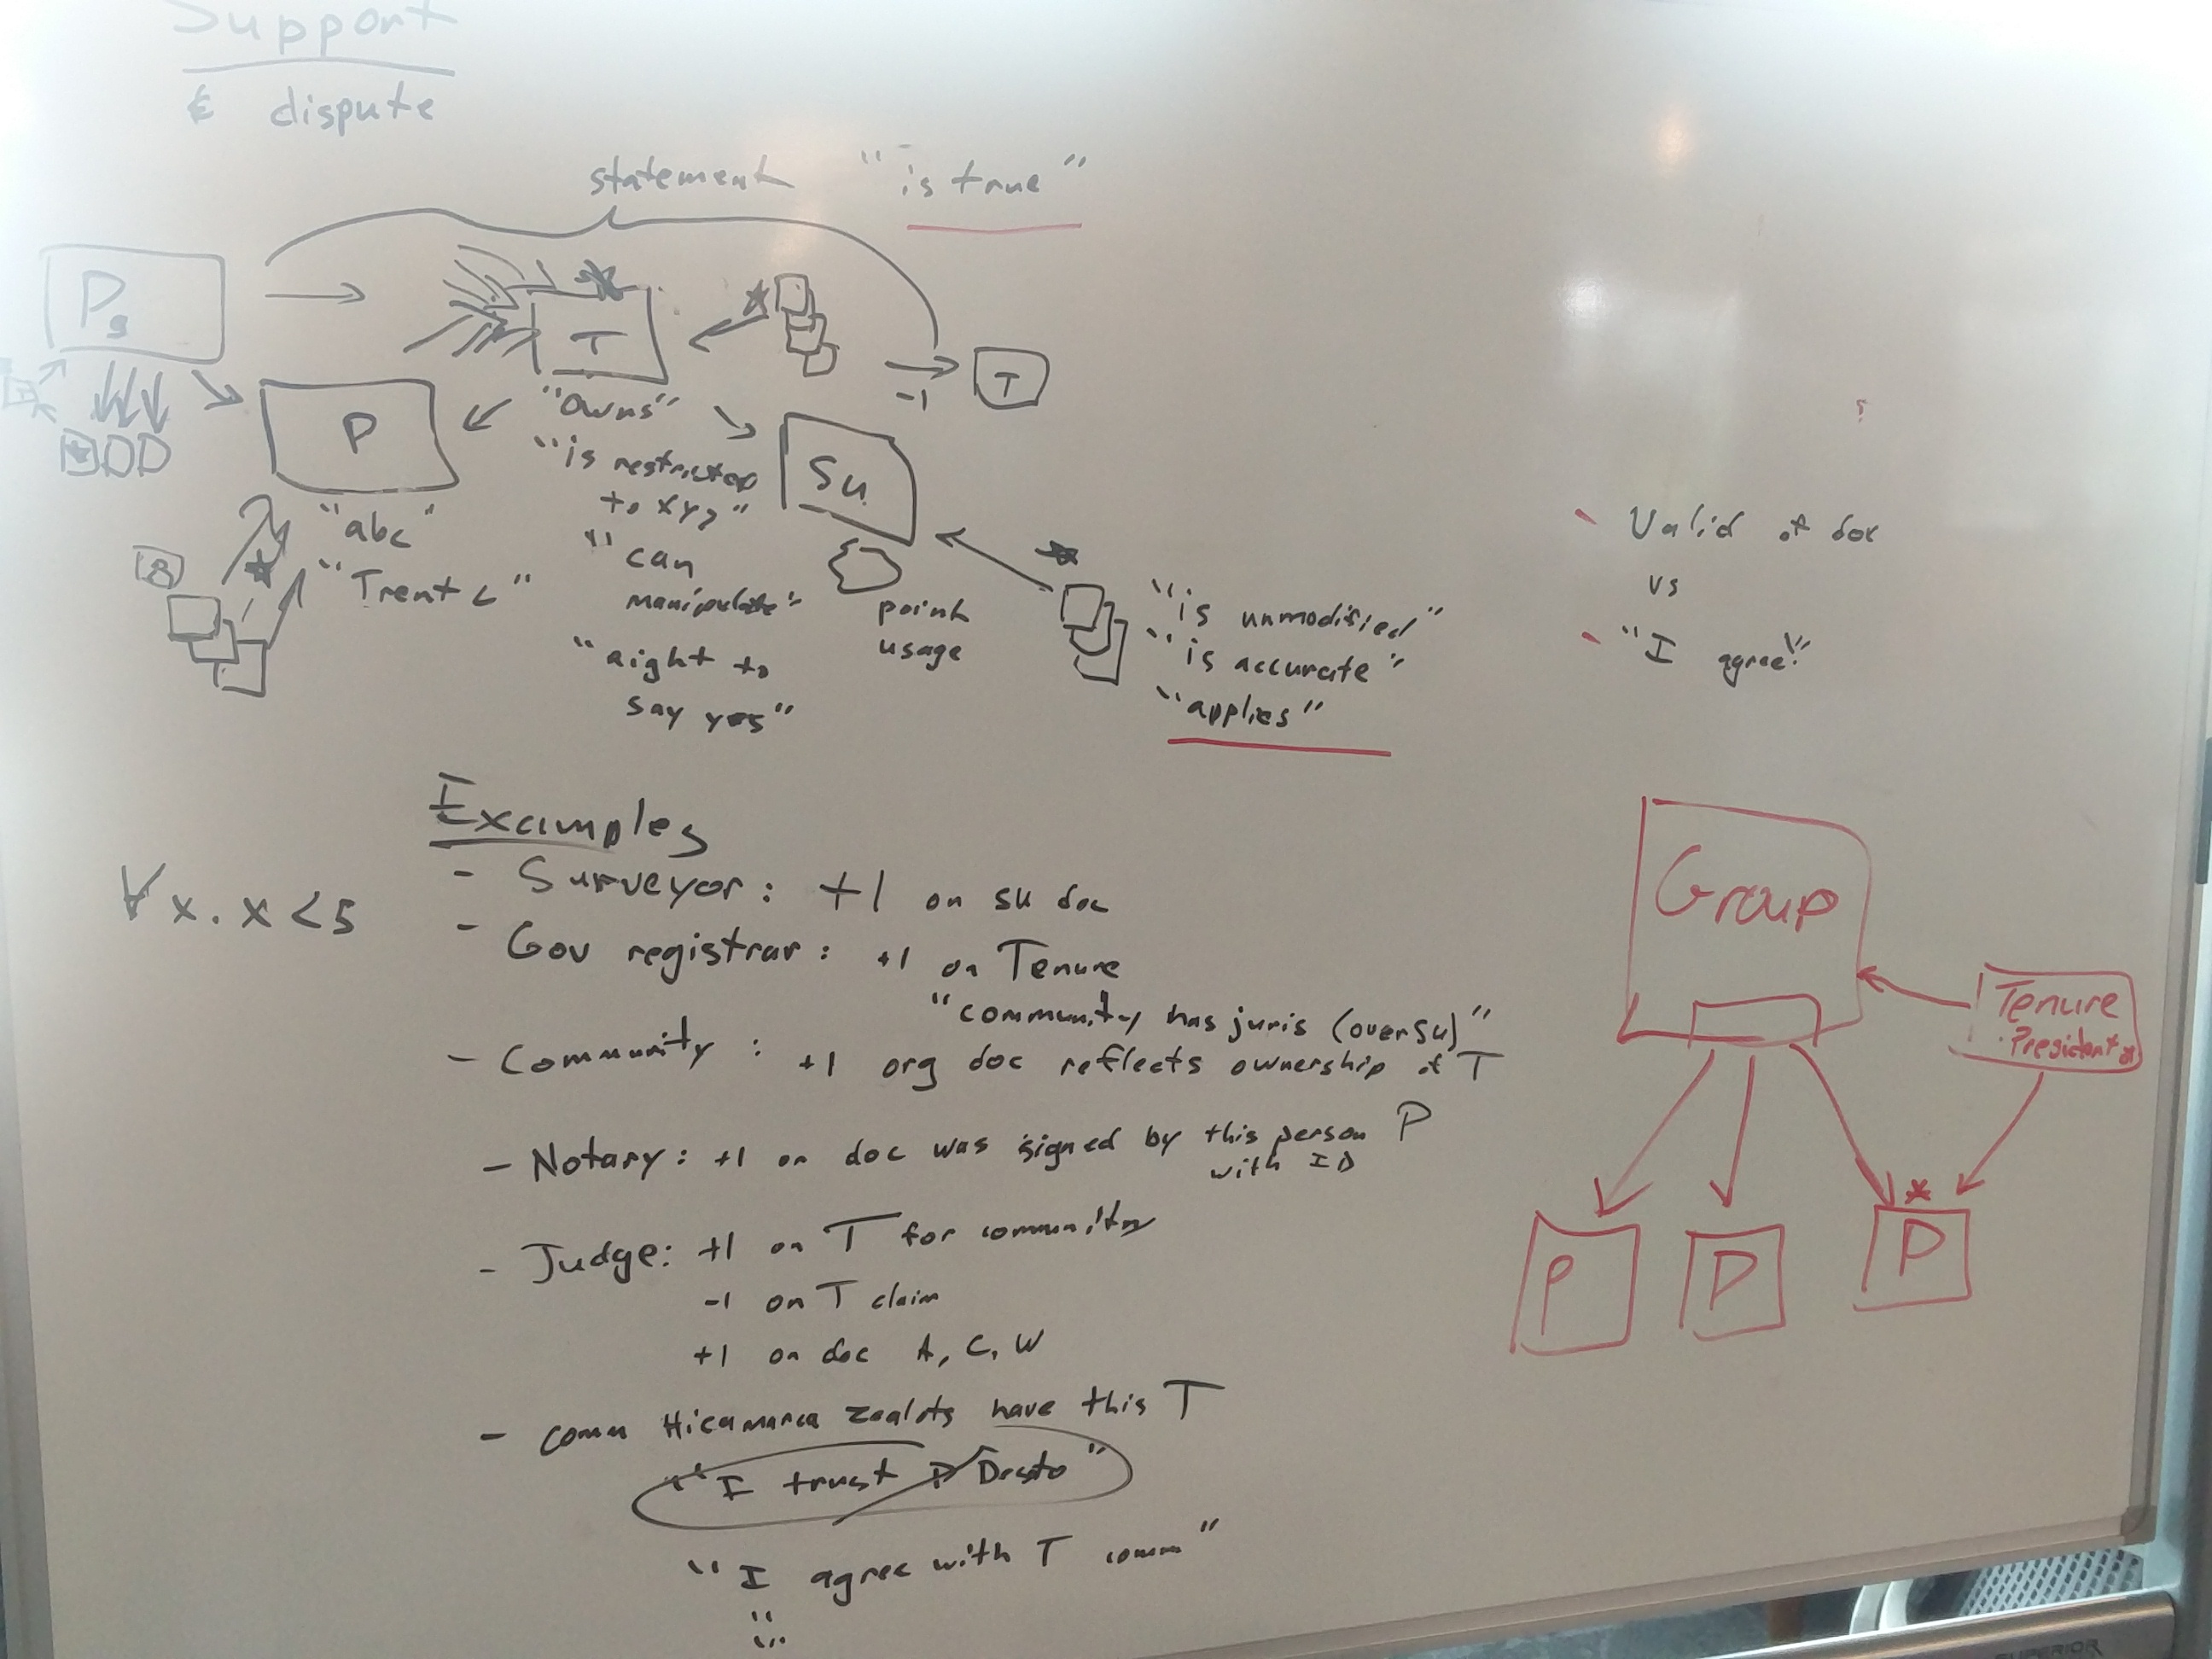 Support
& dispute
statement "is true"
Pg
T
T
-1
P
"owns"
"is restricted
to xyz"
"can
manipulate"
"right to
say yes"
Su
"abc"
"Trent c"
point
usage
"is unmodified"
"is accurate"
"applies"
Valid of doc
vs
"I agree!"
∀x. x<5
Examples
- Surveyor: +1 on su doc
- Gov registrar: +1 on Tenure
"community has juris (over su)"
- Community: +1 org doc reflects ownership of T
- Notary: +1 on doc was signed by this person P
with ID
- Judge: +1 on T for community
-1 on T claim
+1 on doc A, C, W
- comm zealots have this T
"I trust
"I agree with T comm"
Group
Tenure
President
P
P
P
SUPERIOR